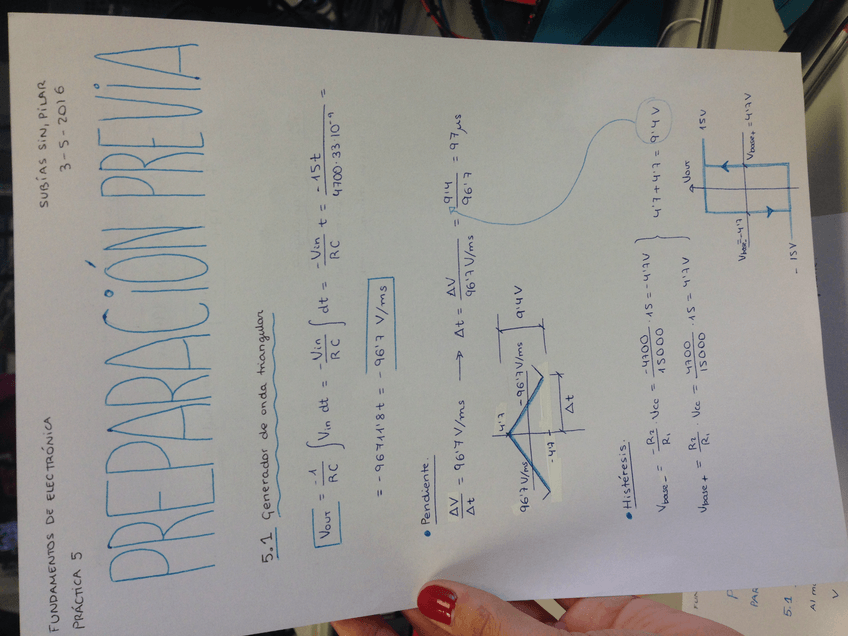 FUNDAMENTOS DE ELECTRÓNICA
PRÁCTICA 5
SUBÍAS SIN, PILAR
3-5-2016
PREPARACIÓN PREVIA
5.1 Generador de onda triangular
Vout = -1/RC ∫ Vin dt = -Vin/RC ∫ dt = -Vin/RC t = -15t/4700·33·10⁻⁹ =
= -96711'8t = -96'7 V/ms
• Pendiente.
ΔV/Δt = 96'7 V/ms → Δt = ΔV/96'7 V/ms = 9'4/96'7 = 97 μs
4'7
96'7 V/ms
-96'7 V/ms
9'4V
-4'7
Δt
• Histéresis.
Vbase- = -R2/R1 · Vcc = -4700/15000 · 15 = -4'7V
Vbase+ = R2/R1 · Vcc = 4700/15000 · 15 = 4'7V
4'7 + 4'7 = 9'4 V
Vout
15V
Vbase-=-4'7
Vbase+ = 4'7V
-15V
5.1